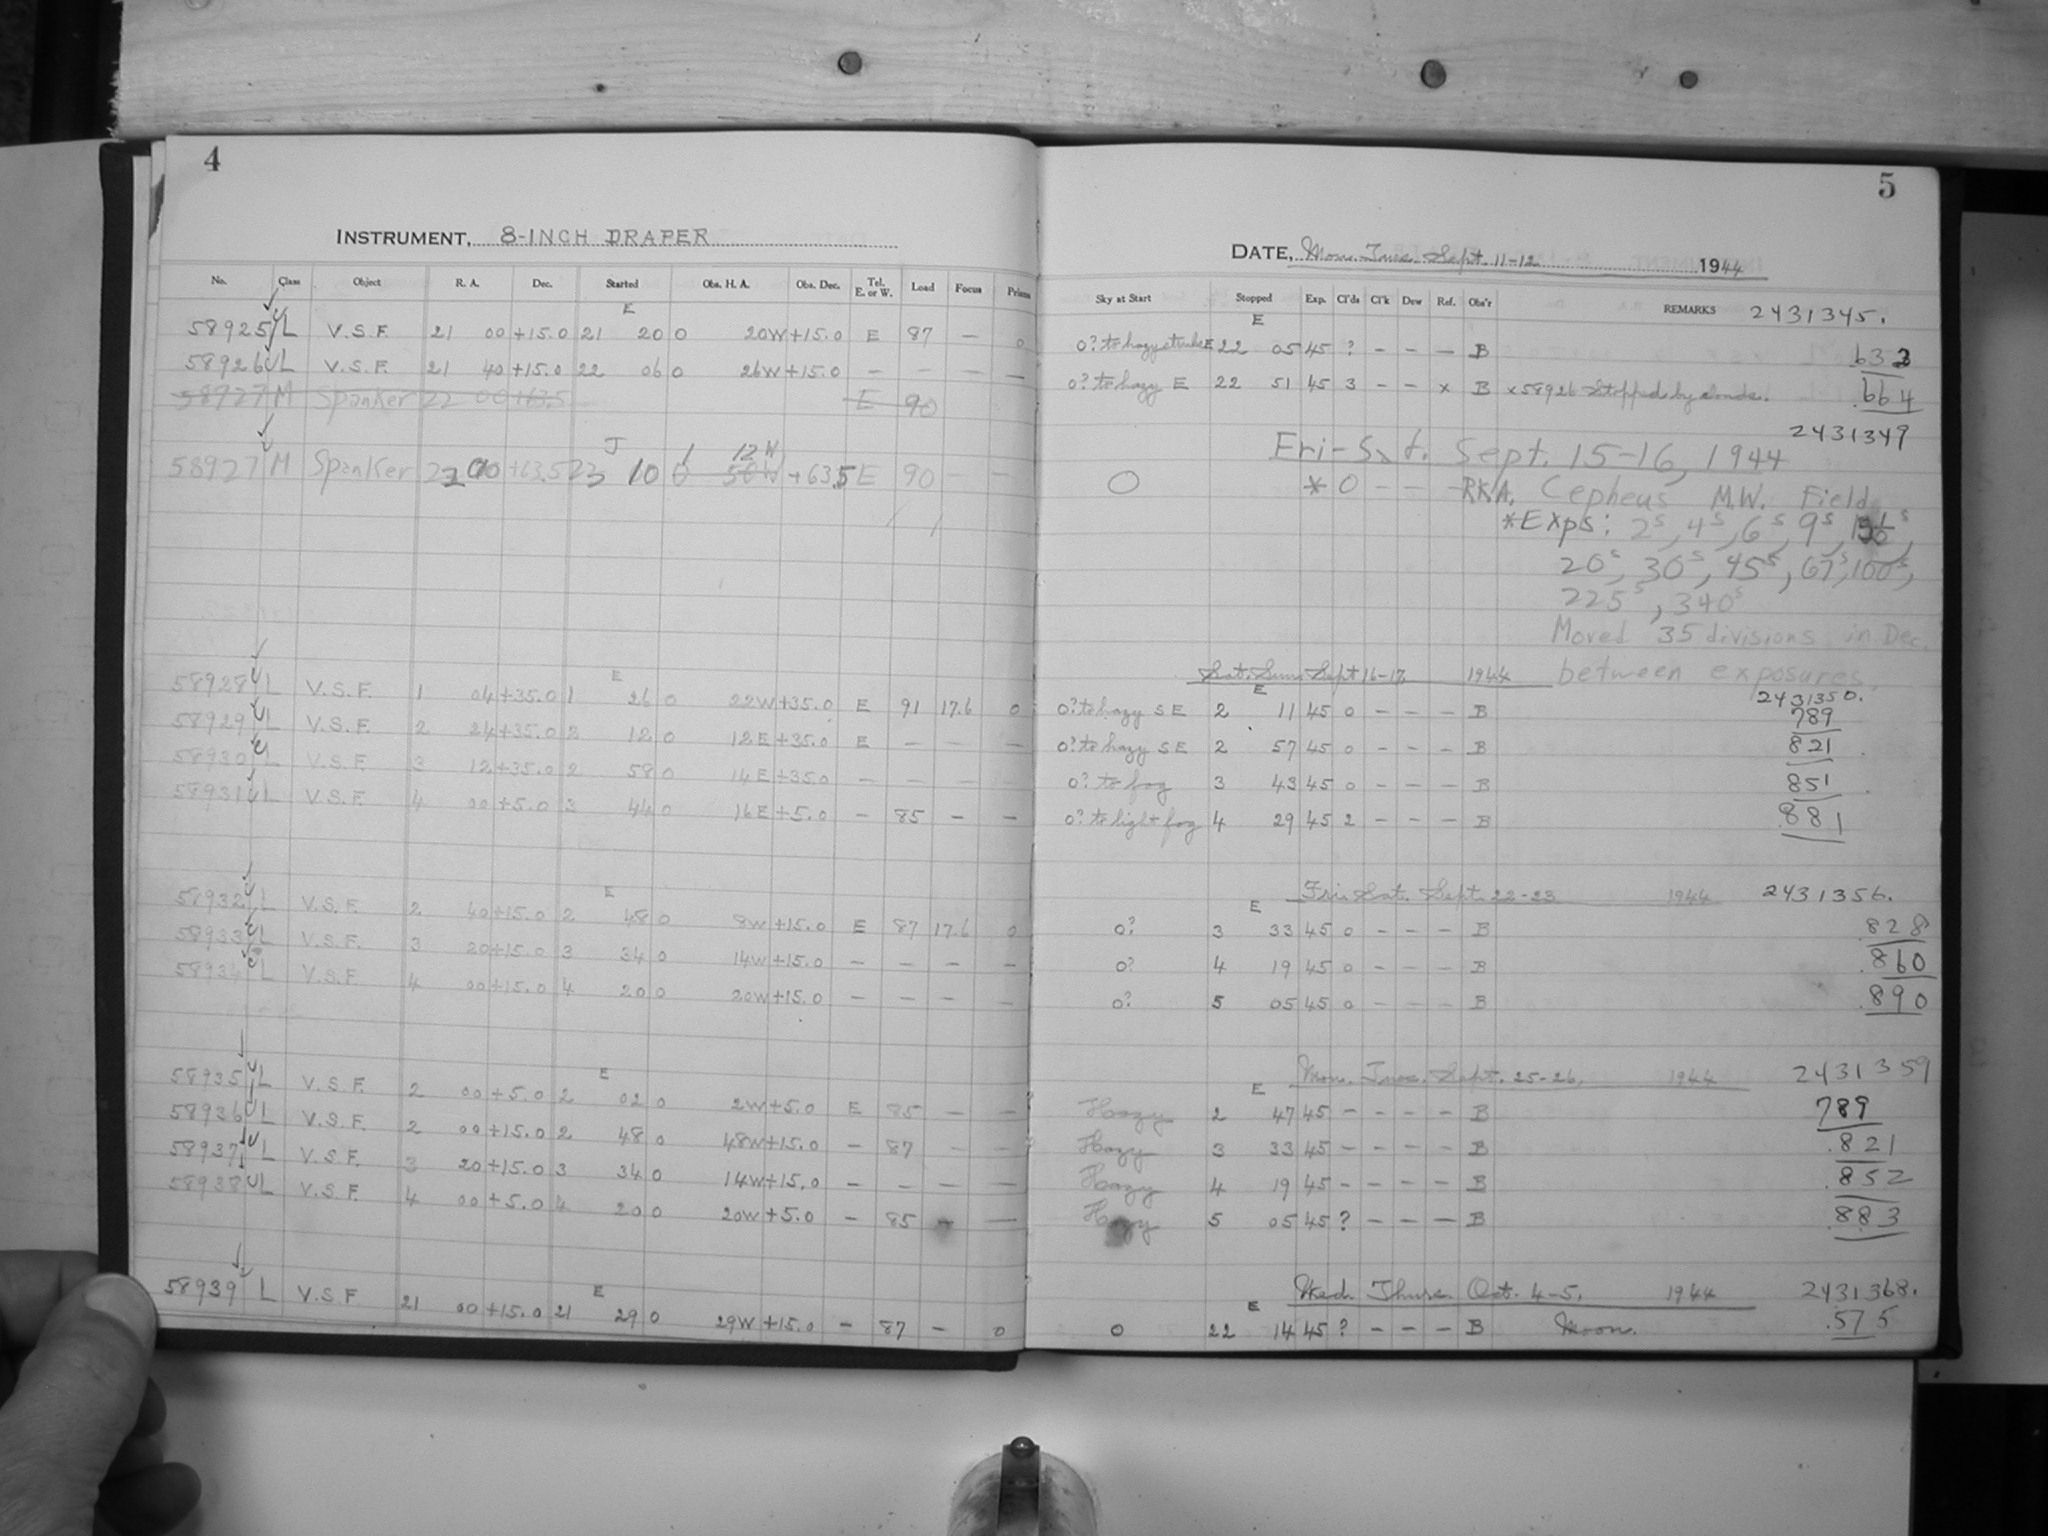 4
INSTRUMENT, 8-INCH DRAPER
No. Class Object R. A. Dec. Started Obs. H. A. Obs. Dec. Tel. E. or W. Load Focus Prism
E
58925 L V.S.F. 21 00 +15.0 21 20 0 20W +15.0 E 87 — 0
58926 L V.S.F. 21 40 +15.0 22 06 0 26W +15.0 — — — —
58927 M Spanker 22 00 +63.5 E 90
J 1 12W
58927 M Spanker 22 00 +63.5 23 10 0 50W +63.5 E 90 — —
E
58928 L V.S.F. 1 04 +35.0 1 26 0 22W +35.0 E 91 17.6 0
58929 L V.S.F. 2 24 +35.0 2 12 0 12E +35.0 E — — —
58930 L V.S.F. 3 12 +35.0 2 58 0 14E +35.0 — — — —
58931 L V.S.F. 4 00 +5.0 3 44 0 16E +5.0 — 85 — —
E
58932 L V.S.F. 2 40 +15.0 2 48 0 8W +15.0 E 87 17.6 0
58933 L V.S.F. 3 20 +15.0 3 34 0 14W +15.0 — — — —
58934 L V.S.F. 4 00 +15.0 4 20 0 20W +15.0 — — — —
E
58935 L V.S.F. 2 00 +5.0 2 02 0 2W +5.0 E 85 — —
58936 L V.S.F. 2 00 +15.0 2 48 0 48W +15.0 — 87 — —
58937 L V.S.F. 3 20 +15.0 3 34 0 14W +15.0 — — — —
58938 L V.S.F. 4 00 +5.0 4 20 0 20W +5.0 — 85 — —
E
58939 L V.S.F. 21 00 +15.0 21 29 0 29W +15.0 — 87 — 0
5
DATE, Mon. Tues. Sept. 11-12 1944
Sky at Start Stopped Exp. Cl'ds Cl'k Dew Ref. Obs'r REMARKS 2431345.
E
0? to hazy E 22 05 45 ? — — — B .632
0? to hazy E 22 51 45 3 — — x B x 58926 Stopped by clouds. .664
2431349
Fri-Sat. Sept. 15-16, 1944
0 * 0 — — — RKA. Cepheus M.W. Field
*Exps: 2s, 4s, 6s, 9s,
20s, 30s, 45s, 67s, 100s,
225s, 340s
Moved 35 divisions in Dec.
Sat. Sun. Sept 16-17 1944 between exposures.
E 2431350.
0? to hazy SE 2 11 45 0 — — — B 789
0? to hazy SE 2 57 45 0 — — — B 821
0? to fog 3 43 45 0 — — — B 851
0? to light fog 4 29 45 2 — — — B .881
E Fri. Sat. Sept. 22-23 1944 2431356.
0? 3 33 45 0 — — — B .828
0? 4 19 45 0 — — — B .860
0? 5 05 45 0 — — — B .890
E Mon. Tues. Sept. 25-26. 1944 2431359
Hazy 2 47 45 — — — — B 789
Hazy 3 33 45 — — — — B .821
Hazy 4 19 45 — — — — B .852
Hazy 5 05 45 ? — — — B .883
E Wed. Thurs. Oct. 4-5. 1944 2431368.
0 22 14 45 ? — — — B Moon. .575